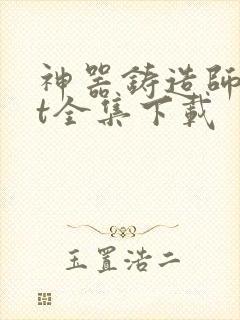 神器鋳造師
t全集下載
玉置浩二